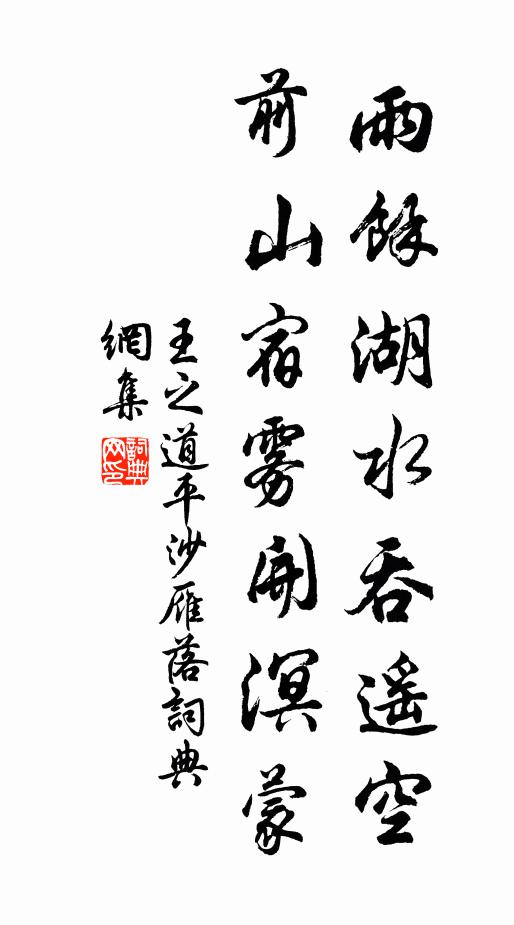 雨餘湖水吞遥空
前山宿雾開溟蒙
王之道平沙雁落詞典
網集
詞典網印